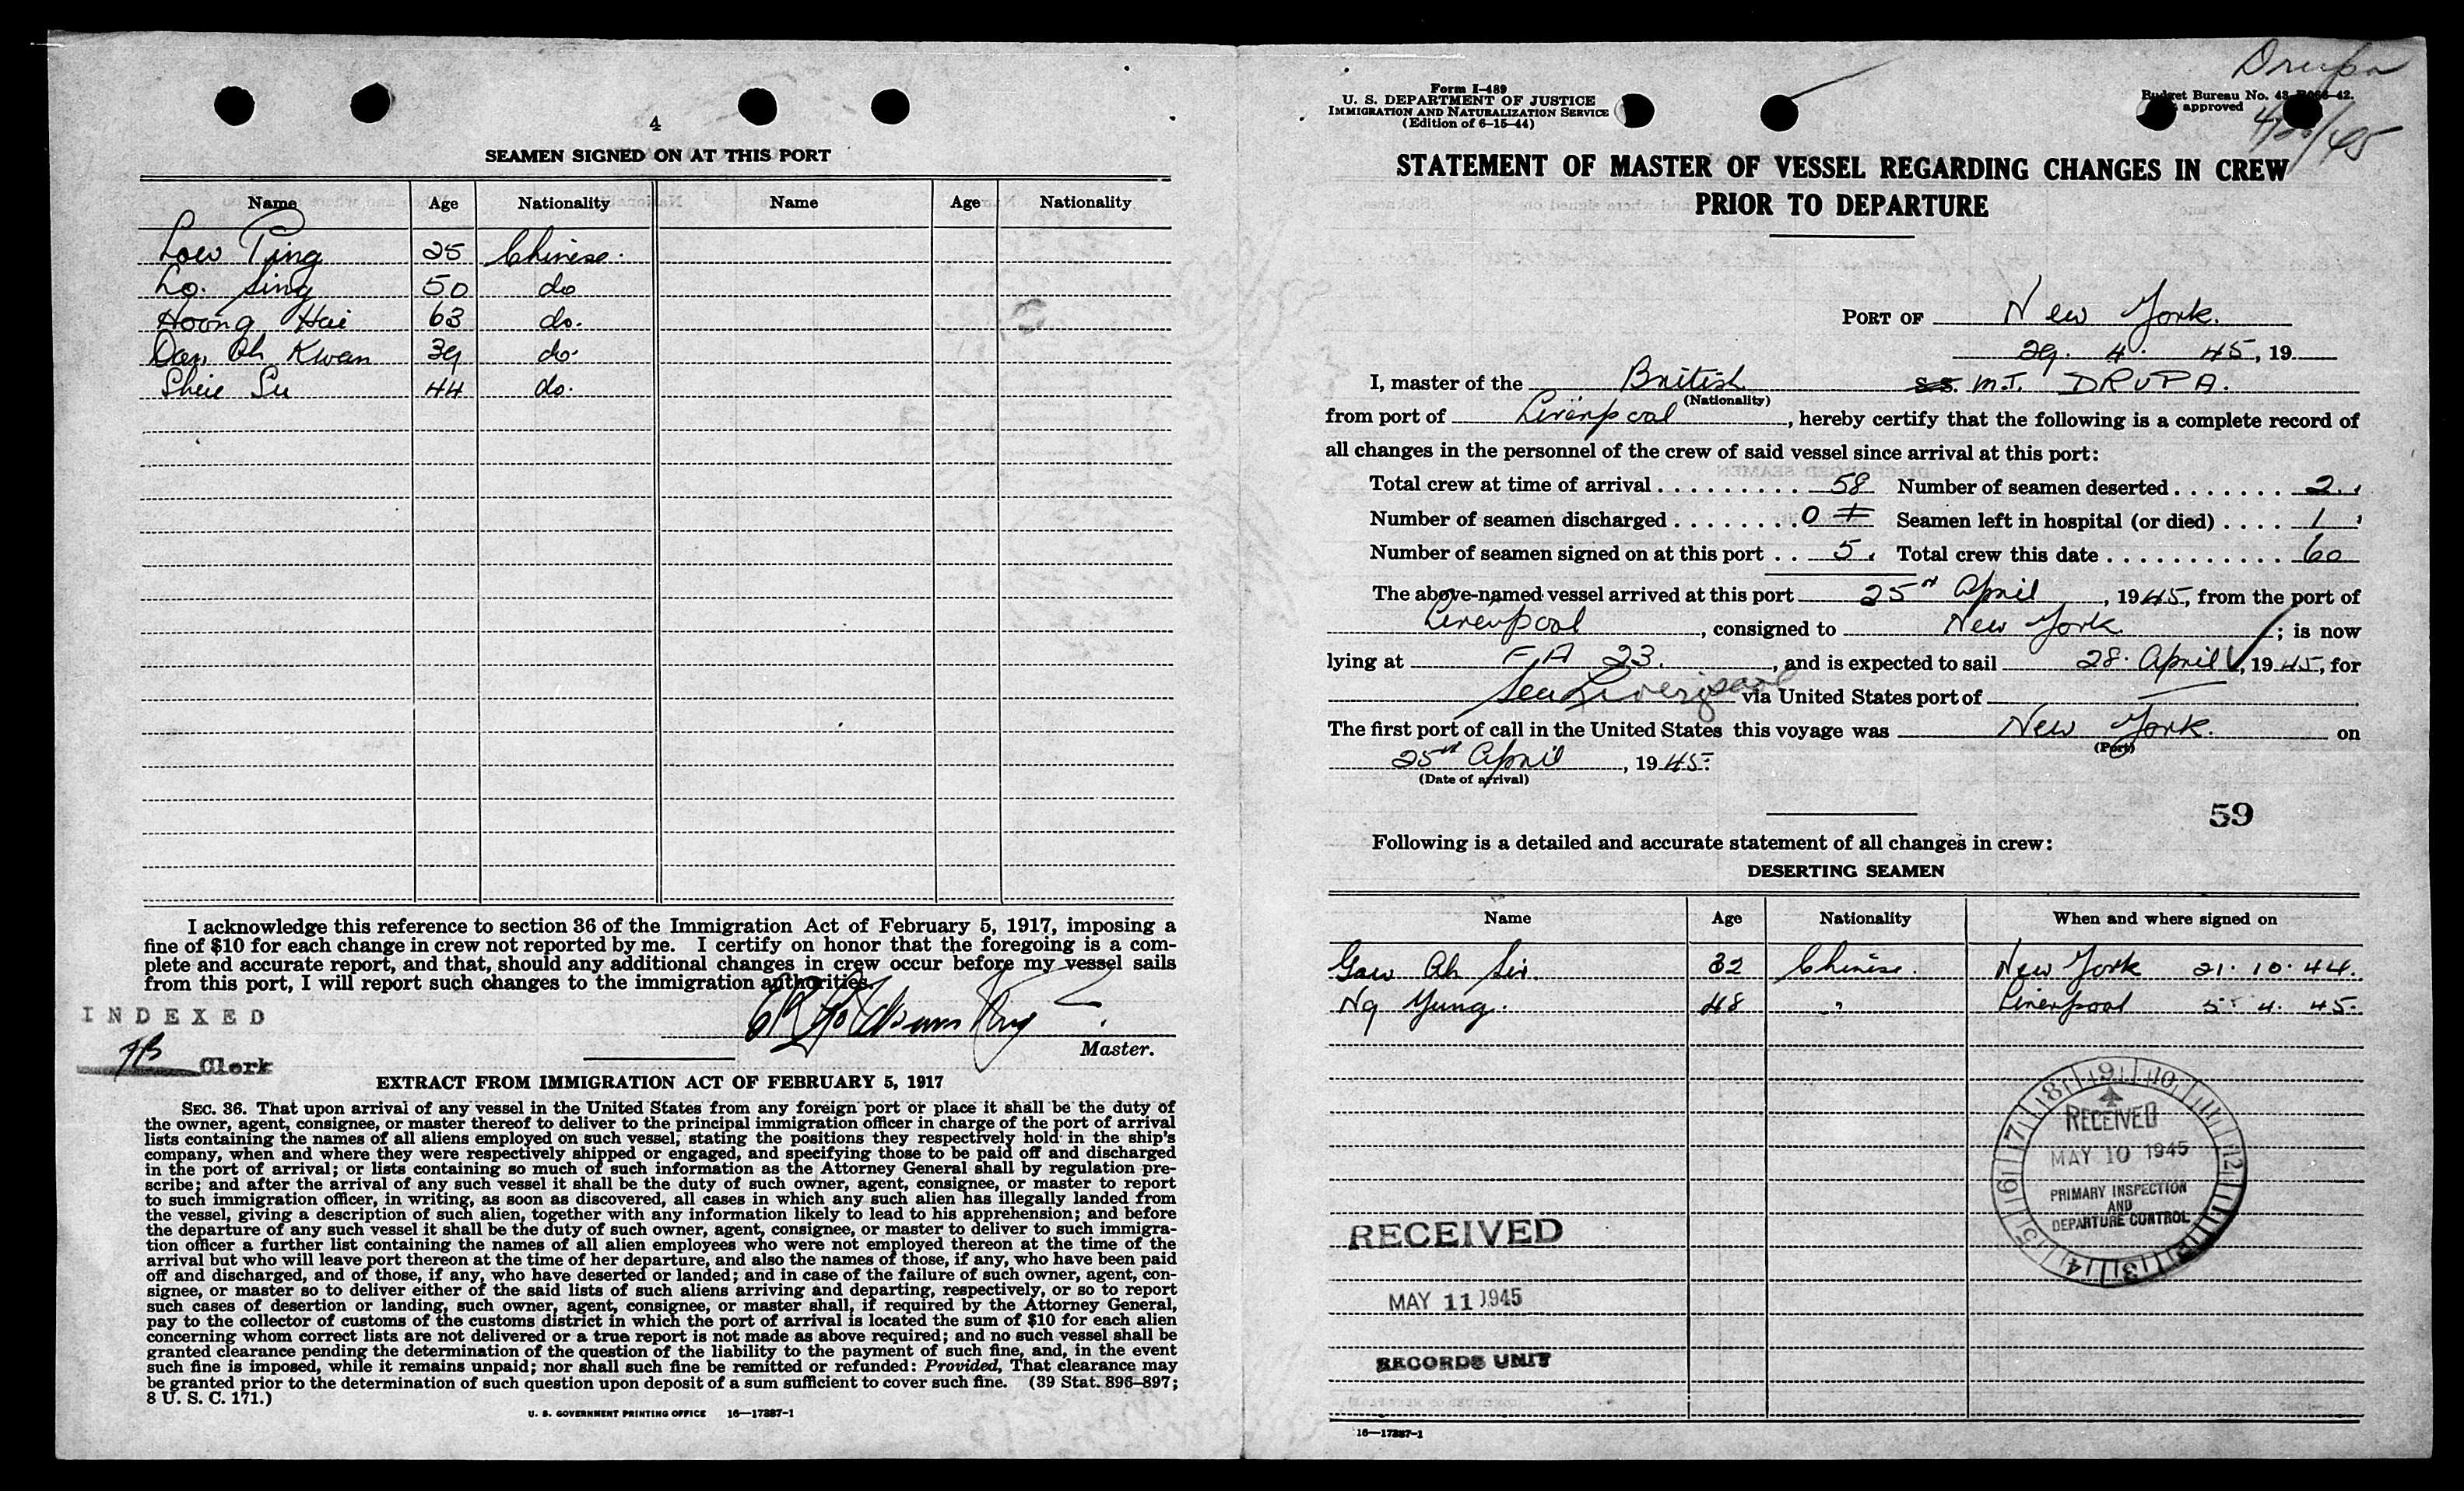 4
SEAMEN SIGNED ON AT THIS PORT
Name Age Nationality Name Age Nationality
Low Ping 25 Chinese.
Lo. Sing 50 do
Hoong Hai 63 do.
Dan Ah Kwan 39 do.
Sheie Su 44 do.
I acknowledge this reference to section 36 of the Immigration Act of February 5, 1917, imposing a
fine of $10 for each change in crew not reported by me. I certify on honor that the foregoing is a com-
plete and accurate report, and that, should any additional changes in crew occur before my vessel sails
from this port, I will report such changes to the immigration authorities.
INDEXED
Master.
Clerk
EXTRACT FROM IMMIGRATION ACT OF FEBRUARY 5, 1917
SEC. 36. That upon arrival of any vessel in the United States from any foreign port or place it shall be the duty of
the owner, agent, consignee, or master thereof to deliver to the principal immigration officer in charge of the port of arrival
lists containing the names of all aliens employed on such vessel, stating the positions they respectively hold in the ship's
company, when and where they were respectively shipped or engaged, and specifying those to be paid off and discharged
in the port of arrival; or lists containing so much of such information as the Attorney General shall by regulation pre-
scribe; and after the arrival of any such vessel it shall be the duty of such owner, agent, consignee, or master to report
to such immigration officer, in writing, as soon as discovered, all cases in which any such alien has illegally landed from
the vessel, giving a description of such alien, together with any information likely to lead to his apprehension; and before
the departure of any such vessel it shall be the duty of such owner, agent, consignee, or master to deliver to such immigra-
tion officer a further list containing the names of all alien employees who were not employed thereon at the time of the
arrival but who will leave port thereon at the time of her departure, and also the names of those, if any, who have been paid
off and discharged, and of those, if any, who have deserted or landed; and in case of the failure of such owner, agent, con-
signee, or master so to deliver either of the said lists of such aliens arriving and departing, respectively, or so to report
such cases of desertion or landing, such owner, agent, consignee, or master shall, if required by the Attorney General,
pay to the collector of customs of the customs district in which the port of arrival is located the sum of $10 for each alien
concerning whom correct lists are not delivered or a true report is not made as above required; and no such vessel shall be
granted clearance pending the determination of the question of the liability to the payment of such fine, and, in the event
such fine is imposed, while it remains unpaid; nor shall such fine be remitted or refunded: Provided, That clearance may
be granted prior to the determination of such question upon deposit of a sum sufficient to cover such fine. (39 Stat. 896–897;
8 U. S. C. 171.)
U. S. GOVERNMENT PRINTING OFFICE 16—17387-1
Drupa
Form I-489
U. S. DEPARTMENT OF JUSTICE
IMMIGRATION AND NATURALIZATION SERVICE
(Edition of 6-15-44)
Budget Bureau No. 43-R066-42.
approved
STATEMENT OF MASTER OF VESSEL REGARDING CHANGES IN CREW
PRIOR TO DEPARTURE
PORT OF New York.
29. 4. 45, 19
I, master of the British S.S. M.T. DRUPA.
(Nationality)
from port of Liverpool, hereby certify that the following is a complete record of
all changes in the personnel of the crew of said vessel since arrival at this port:
Total crew at time of arrival 58 Number of seamen deserted 2
Number of seamen discharged 0 Seamen left in hospital (or died) 1
Number of seamen signed on at this port 5 Total crew this date 60
The above-named vessel arrived at this port 25th April, 1945, from the port of
Liverpool, consigned to New York; is now
lying at F.A 23., and is expected to sail 28. April, 1945, for
Sea Liverpool via United States port of —
The first port of call in the United States this voyage was New York. on
(Port)
25th April, 1945.
(Date of arrival)
59
Following is a detailed and accurate statement of all changes in crew:
DESERTING SEAMEN
Name Age Nationality When and where signed on
Gaw Ah Sir. 32 Chinese. New York 21. 10. 44.
Ng Yung. 48 " Liverpool 5. 4. 45.
6 7 8 9 10 11 12 1 2 3 4 5
RECEIVED
MAY 10 1945
PRIMARY INSPECTION
AND
DEPARTURE CONTROL
RECEIVED
MAY 11 1945
RECORDS UNIT
16—17387-1